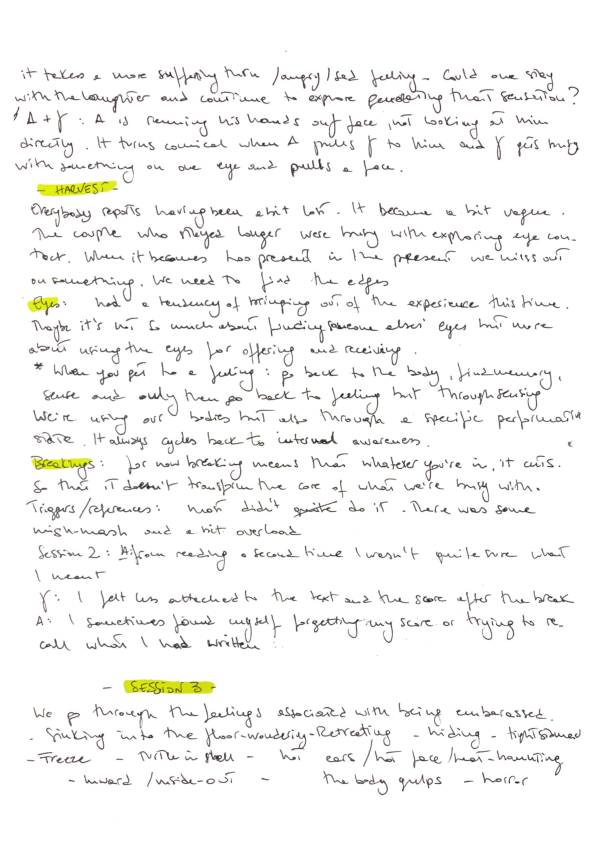 it takes a more suffering turn /angry/sad feeling - Could one stay
with the laughter and continue to explore penetrating that sensation?
A + Y : A is running his hands out face, not looking at him
directly. It turns comical when A pulls Y to him and Y gets busy
with something on one eye and pulls a face.
- HARVEST -
Everybody reports having been a bit lost. It became a bit vague.
The couple who stayed longer were busy with exploring eye con-
tact. When it becomes too present in the present we miss out
on something. We need to find the edges
Eyes: had a tendency of bringing out of the experience this time.
Maybe it's not so much about finding someone elses' eyes but more
about using the eyes for offering and receiving.
* When you get to a feeling: go back to the body, find memory,
sense and only then go back to feeling but through sensing
We're using our bodies but also through a specific performative
state. It always cycles back to internal awareness.
Breakings: for now breaking means that whatever you're in, it cuts.
So that it doesn't transform the core of what we're busy with.
Triggers/references: most didn't quite do it. There was some
mish-mash and a bit overload
Session 2: A: from reading a second time I wasn't quite sure what
I meant
Y: I felt less attached to the text and the score after the break
A: I sometimes found myself forgetting my score or trying to re-
call what I had written.
- SESSION 3 -
We go through the feelings associated with being embarassed.
- Sinking into the floor-wondering-Retreating - hiding - tight
- Freeze - Turtle in shell - hot ears/hot face/heat-haunting
- Inward /inside-out - the body gulps - horror